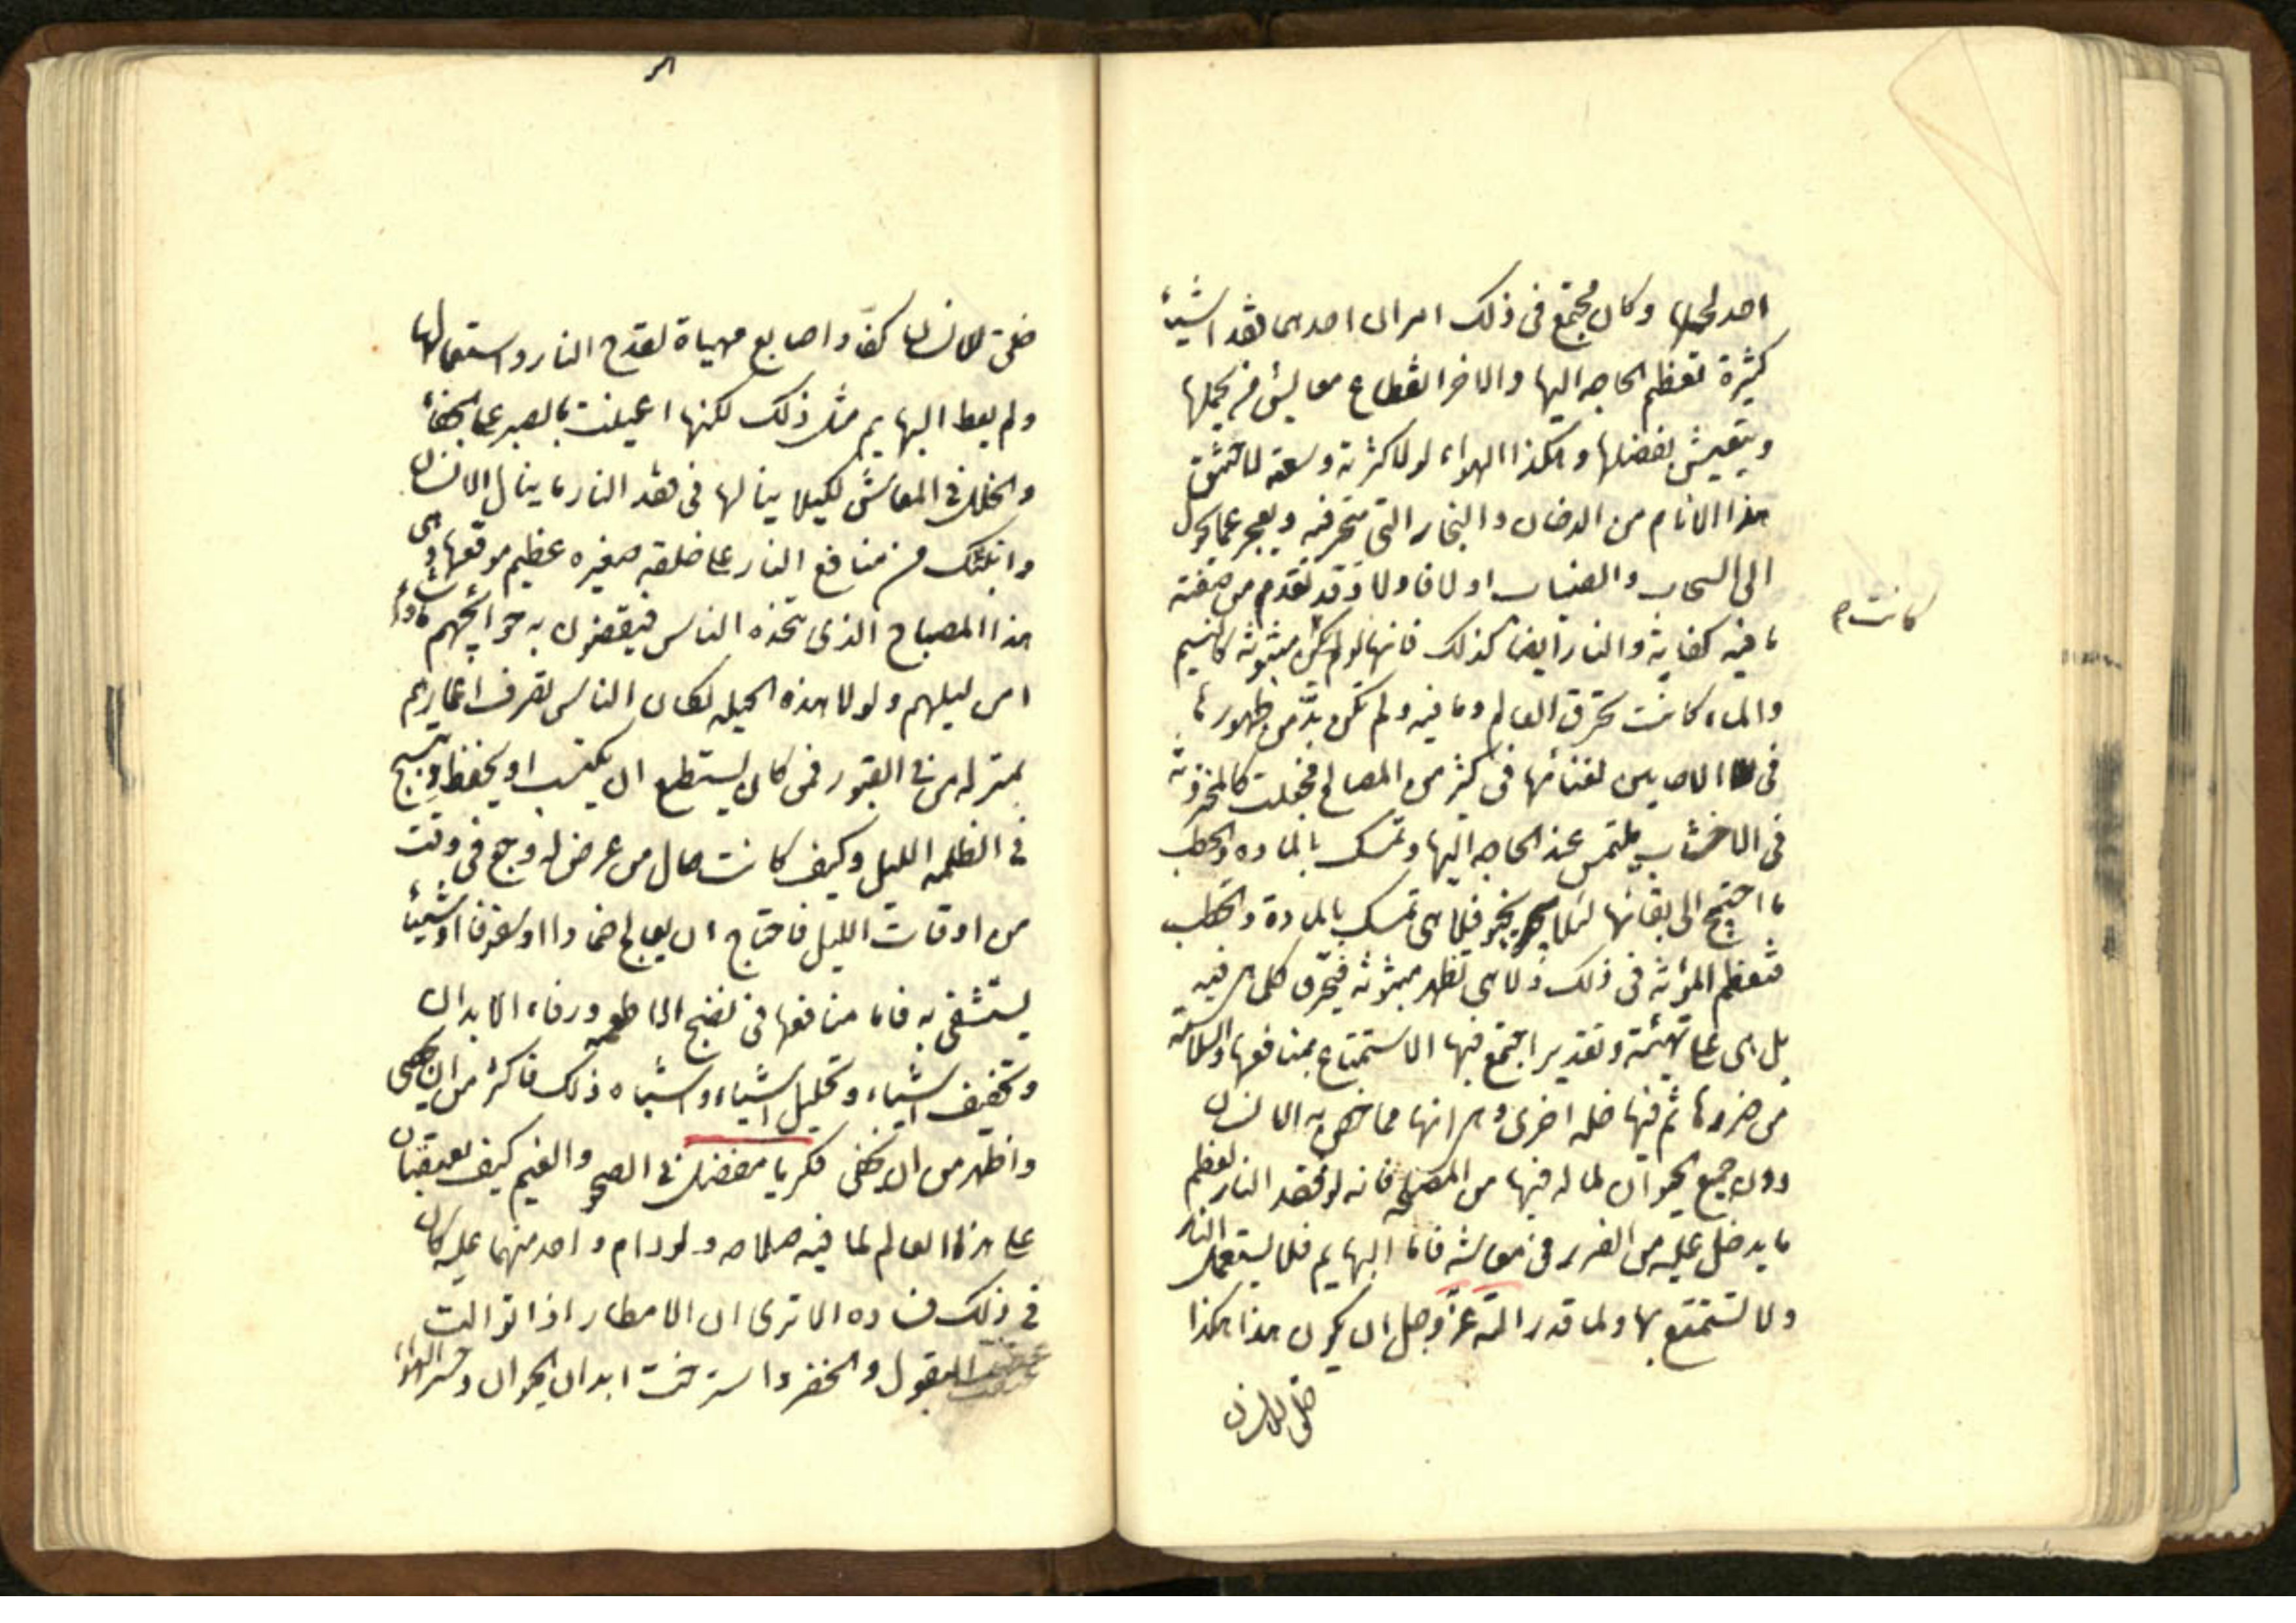 احد لجها وكان مجتمع فى ذلك امران احدهما فقد اشياء
كثيرة تعظم الحاجه اليها والاخر انقطاع معايش من يحملها
ويتعيش بفضلها وهكذا الهواء لولا كثرته وسعته لاختنق
هذا الانام من الدخان والبخار التى يتحر فيه ويعجز عما يحول
الى السحاب والضباب اولا فاولا وقد تقدم من صفته
ما فيه كفاية والنار ايضا كذلك فانها لو لم تكن مبثوثة كالنسيم
كانت م
والماء كانت تحرق العالم وما فيه ولم تكن بد من ظهورها
فى الاحايين لغنائها فى كثير من المصالح فجعلت كالمخزونة
فى الاخشاب يلتمس عند الحاجه اليها وتمسك بالماده والحطب
ما احتيج الى بقائها لئلا يخبو فلا هى تمسك بالمادة والحطب
فتعظم المؤنة فى ذلك ولا هى تظهر مبثوثه فيحرق كلما هى فيه
بل هى على تهيئة وتقدير اجتمع فيها الاستمتاع بمنافعها والسلامة
من ضررها ثم فيها خله اخرى وهى انها مما خص به الانسان
دون جميع الحيوان لما له فيها من المصلحه فانه لو فقد النار لعظم
ما يدخل عليه من الضرر فى معاشه فاما البهايم فلا يستعمل النار
ولا تستمتع بها ولما قدر الله عز وجل ان يكون هذا هكذا
خلق للانسان
خلق للانسان كفا واصابع مهياة لقدح النار واستعمالها
ولم يعط البهايم مثل ذلك لكنها اعينت بالصبر على الجفاء
والخلل فى المعاش لكيلا ينالها فى فقد النار ما ينال الانسان
وانبئك من منافع النار على خلقه صغيره عظيم موقعها وهى
هذا المصباح الذى يتخذه الناس فيقضون به حوائجهم ما شاؤا
من ليلهم ولولا هذه الحيله لكان الناس تصرف اعمارهم
بمنزله من فى القبور فمن كان يستطع ان يكتب او يحفظ وينسج
فى الظلمه الليل وكيف كانت حال من عرض له وجع فى وقت
من اوقات الليل فاحتاج ان يعالج ضمادا او سفوفا او شيئا
يستشفى به فاما منافعها فى نضج الاطعمه ورفاء الابدان
وتجفيف اشياء وتحليل اشياء واشباه ذلك فاكثر من ان يحصى
واظهر من ان يخفى فكر يا مفضل فى الصحو والغيم كيف يعتقبان
على هذا العالم لما فيه صلاحه ولو دام واحد منهما عليه كان
فى ذلك فساده الا ترى ان الامطار اذا توالت
عفنت البقول والخضر واسترخت ابدان الحيوان وخسر الهواء